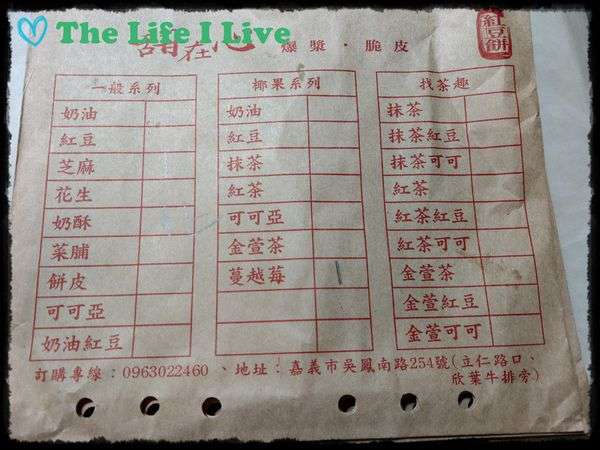 The Life I Live
在心 爆漿·脆皮
紅豆餅
一般系列
奶油
紅豆
芝麻
花生
奶酥
菜脯
餅皮
可可亞
奶油紅豆
椰果系列
奶油
紅豆
抹茶
紅茶
可可亞
金萱茶
蔓越莓
找茶趣
抹茶
抹茶紅豆
抹茶可可
紅茶
紅茶紅豆
紅茶可可
金萱茶
金萱紅豆
金萱可可
訂購專線：0963022460 、地址：嘉義市吳鳳南路254號(立仁路口、
欣葉牛排旁)